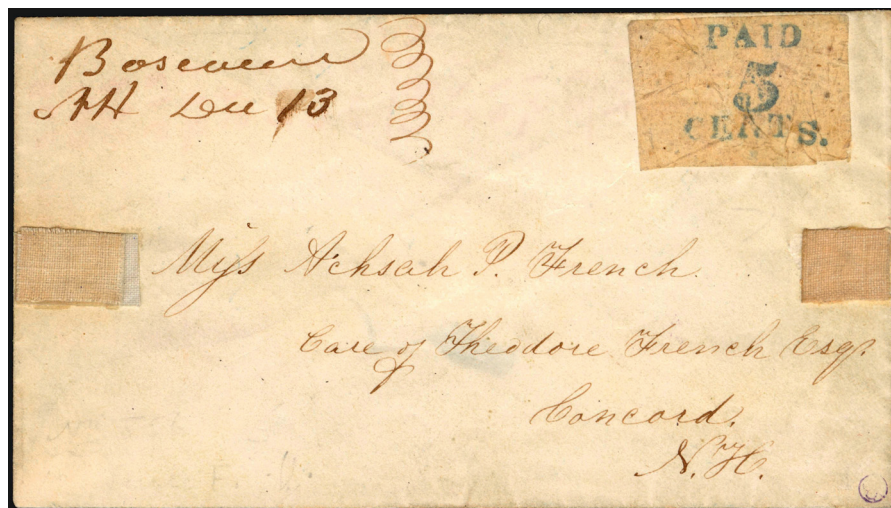 Boscawen
NH Dec 13
PAID
5
CENTS.
Miss Achsah P. French.
Care of Theodore French Esqr.
Concord,
N. H.